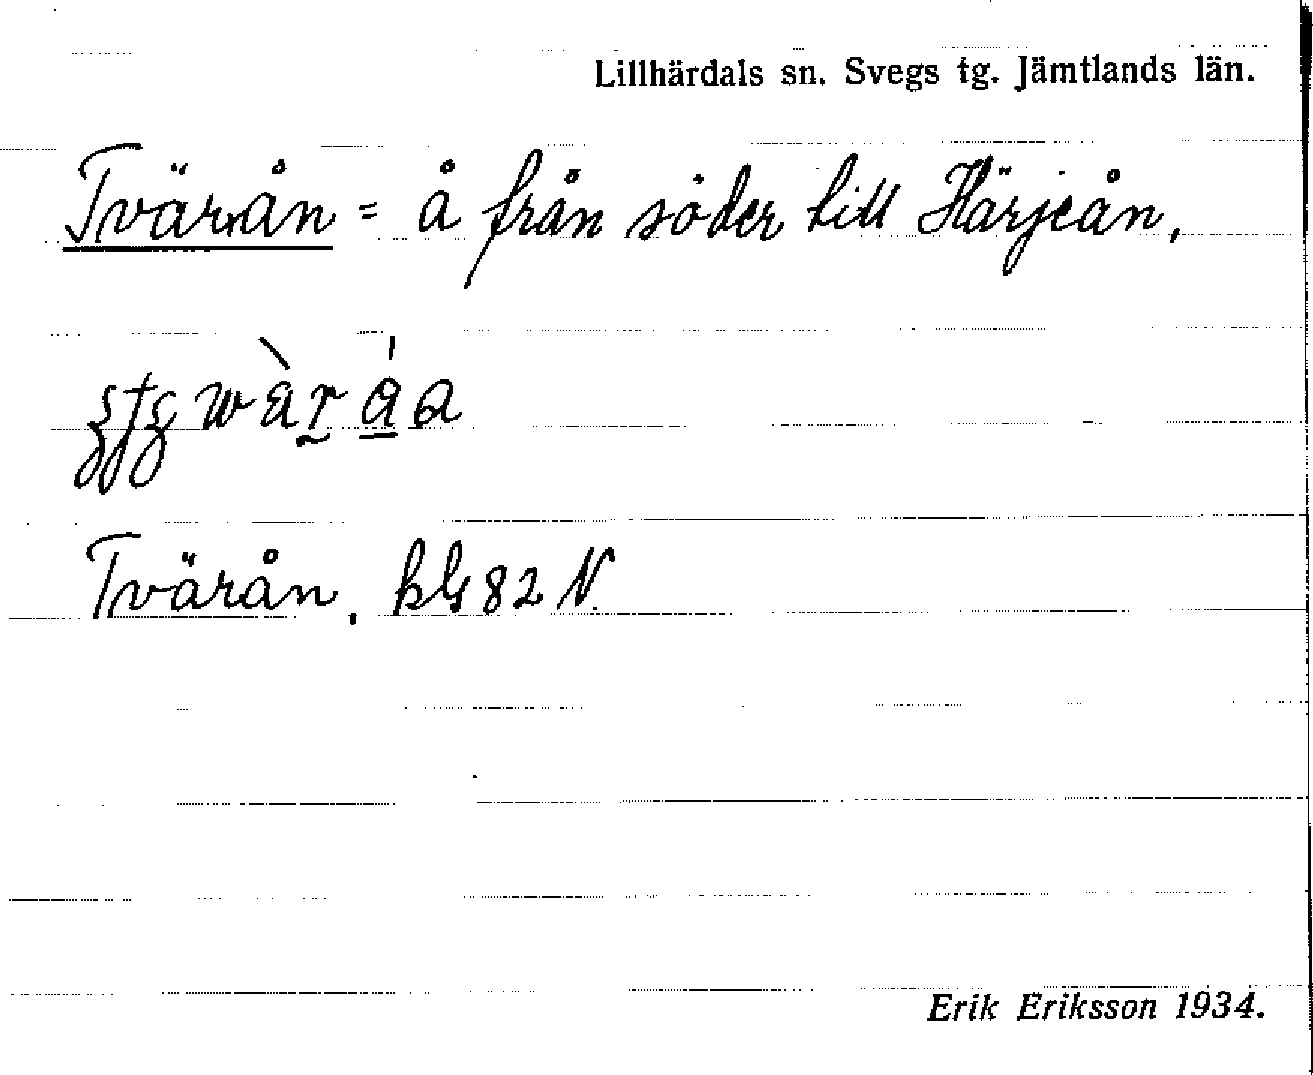 Lillhärdals sn. Svegs tg. Jämtlands län.
Tvärån = å från söder till Härjeån,
Tvärån, kbl 82 N.
Erik Eriksson 1934.